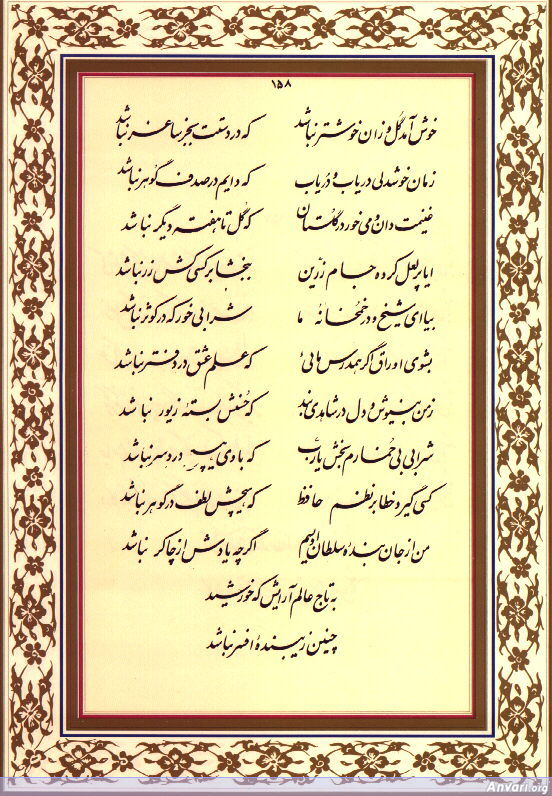 ۱۵۸
خوش آمد گل وزان خوشتر نباشد که در دستت بجز ساغر نباشد
زمان خوشدلی دریاب و دریاب که دایم در صدف گوهر نباشد
غنیمت دان و می خور در گلستان که گل تا هفته دیگر نباشد
ایا پرلعل کرده جام زرین ببخشا بر کسی کش زر نباشد
بیا ای شیخ و در خمخانهٔ ما شرابی خور که در کوثر نباشد
بشوی اوراق اگر همدرس مائی که علم عشق در دفتر نباشد
ز من بنیوش و دل در شاهدی بند که حُسنش بستهٔ زیور نباشد
شرابی بی خمارم بخش یارب که با وی هیچ درد سر نباشد
کسی گیرد خطا بر نظم حافظ که هیچش لطف در گوهر نباشد
من از جان بندهٔ سلطان اویسم اگرچه یادش از چاکر نباشد
به تاج عالم آرایش که خورشید
چنین زیبندهٔ افسر نباشد
Anvari.org